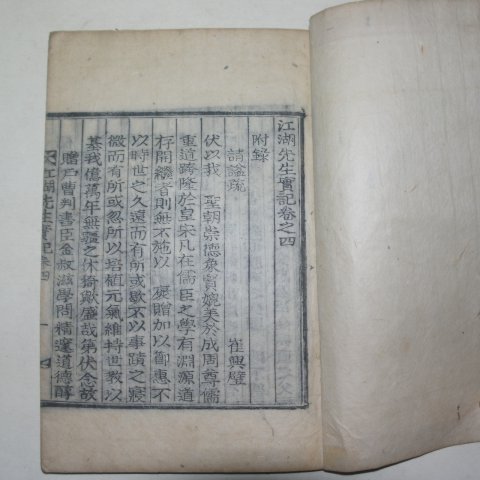 江湖先生實記卷之四
附錄
請諡疏 崔興璧
伏以我 聖朝崇德象賢媲美於成周尊儒
重道跨隆於皇宋凡在儒臣之學有淵源道
存開繼者則無不施以 贈加以 惠不
以時世之久遠而有所或歇不以事蹟之寢
微而有所或忽所以培植元氣維持世敎以
基我億萬年無疆之休猗歟盛哉第伏念故
贈戶曹判書臣金叔滋學問精邃道德醇
江湖先生實記 卷四 一